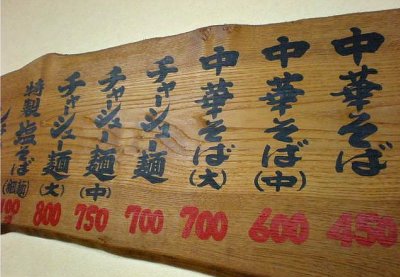 中華そば 450
中華そば(中) 600
中華そば(大) 700
チャーシュー麺 700
チャーシュー麺(中) 750
チャーシュー麺(大) 800
特製塩そば(細麺)